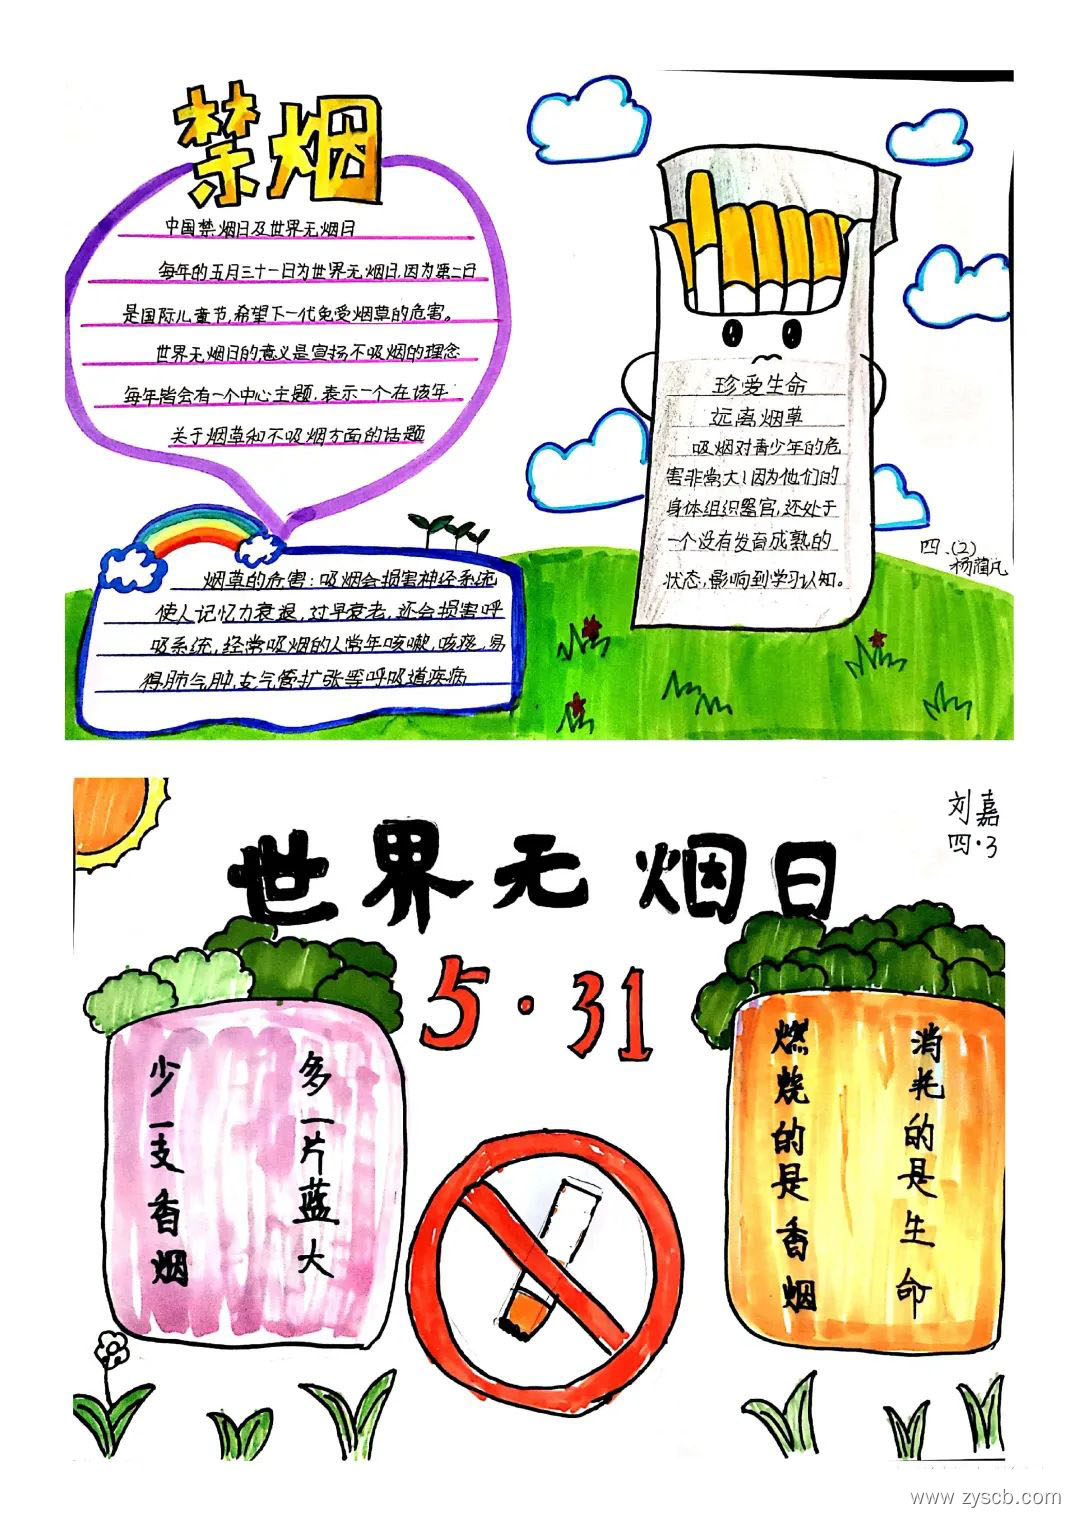 禁烟
中国禁烟日及世界无烟日
每年的五月三十一日为世界无烟日,因为第二日
是国际儿童节,希望下一代免受烟草的危害。
世界无烟日的意义是宣扬不吸烟的理念
每年皆会有一个中心主题,表示一个在该年
关于烟草和不吸烟方面的话题
烟草的危害:吸烟会损害神经系统
使人记忆力衰退,过早衰老,还会损害呼
吸系统,经常吸烟的人常年咳嗽,咳痰,易
得肺气肿,支气管扩张等呼吸道疾病
珍爱生命
远离烟草
吸烟对青少年的危
害非常大!因为他们的
身体组织器官,还处于
一个没有发育成熟的
状态,影响到学习认知。
四.(2)
杨蔺凡
刘嘉
四·3
世界无烟日
5·31
少一支香烟
多一片蓝大
燃烧的是香烟
消耗的是生命
www.zyscb.com